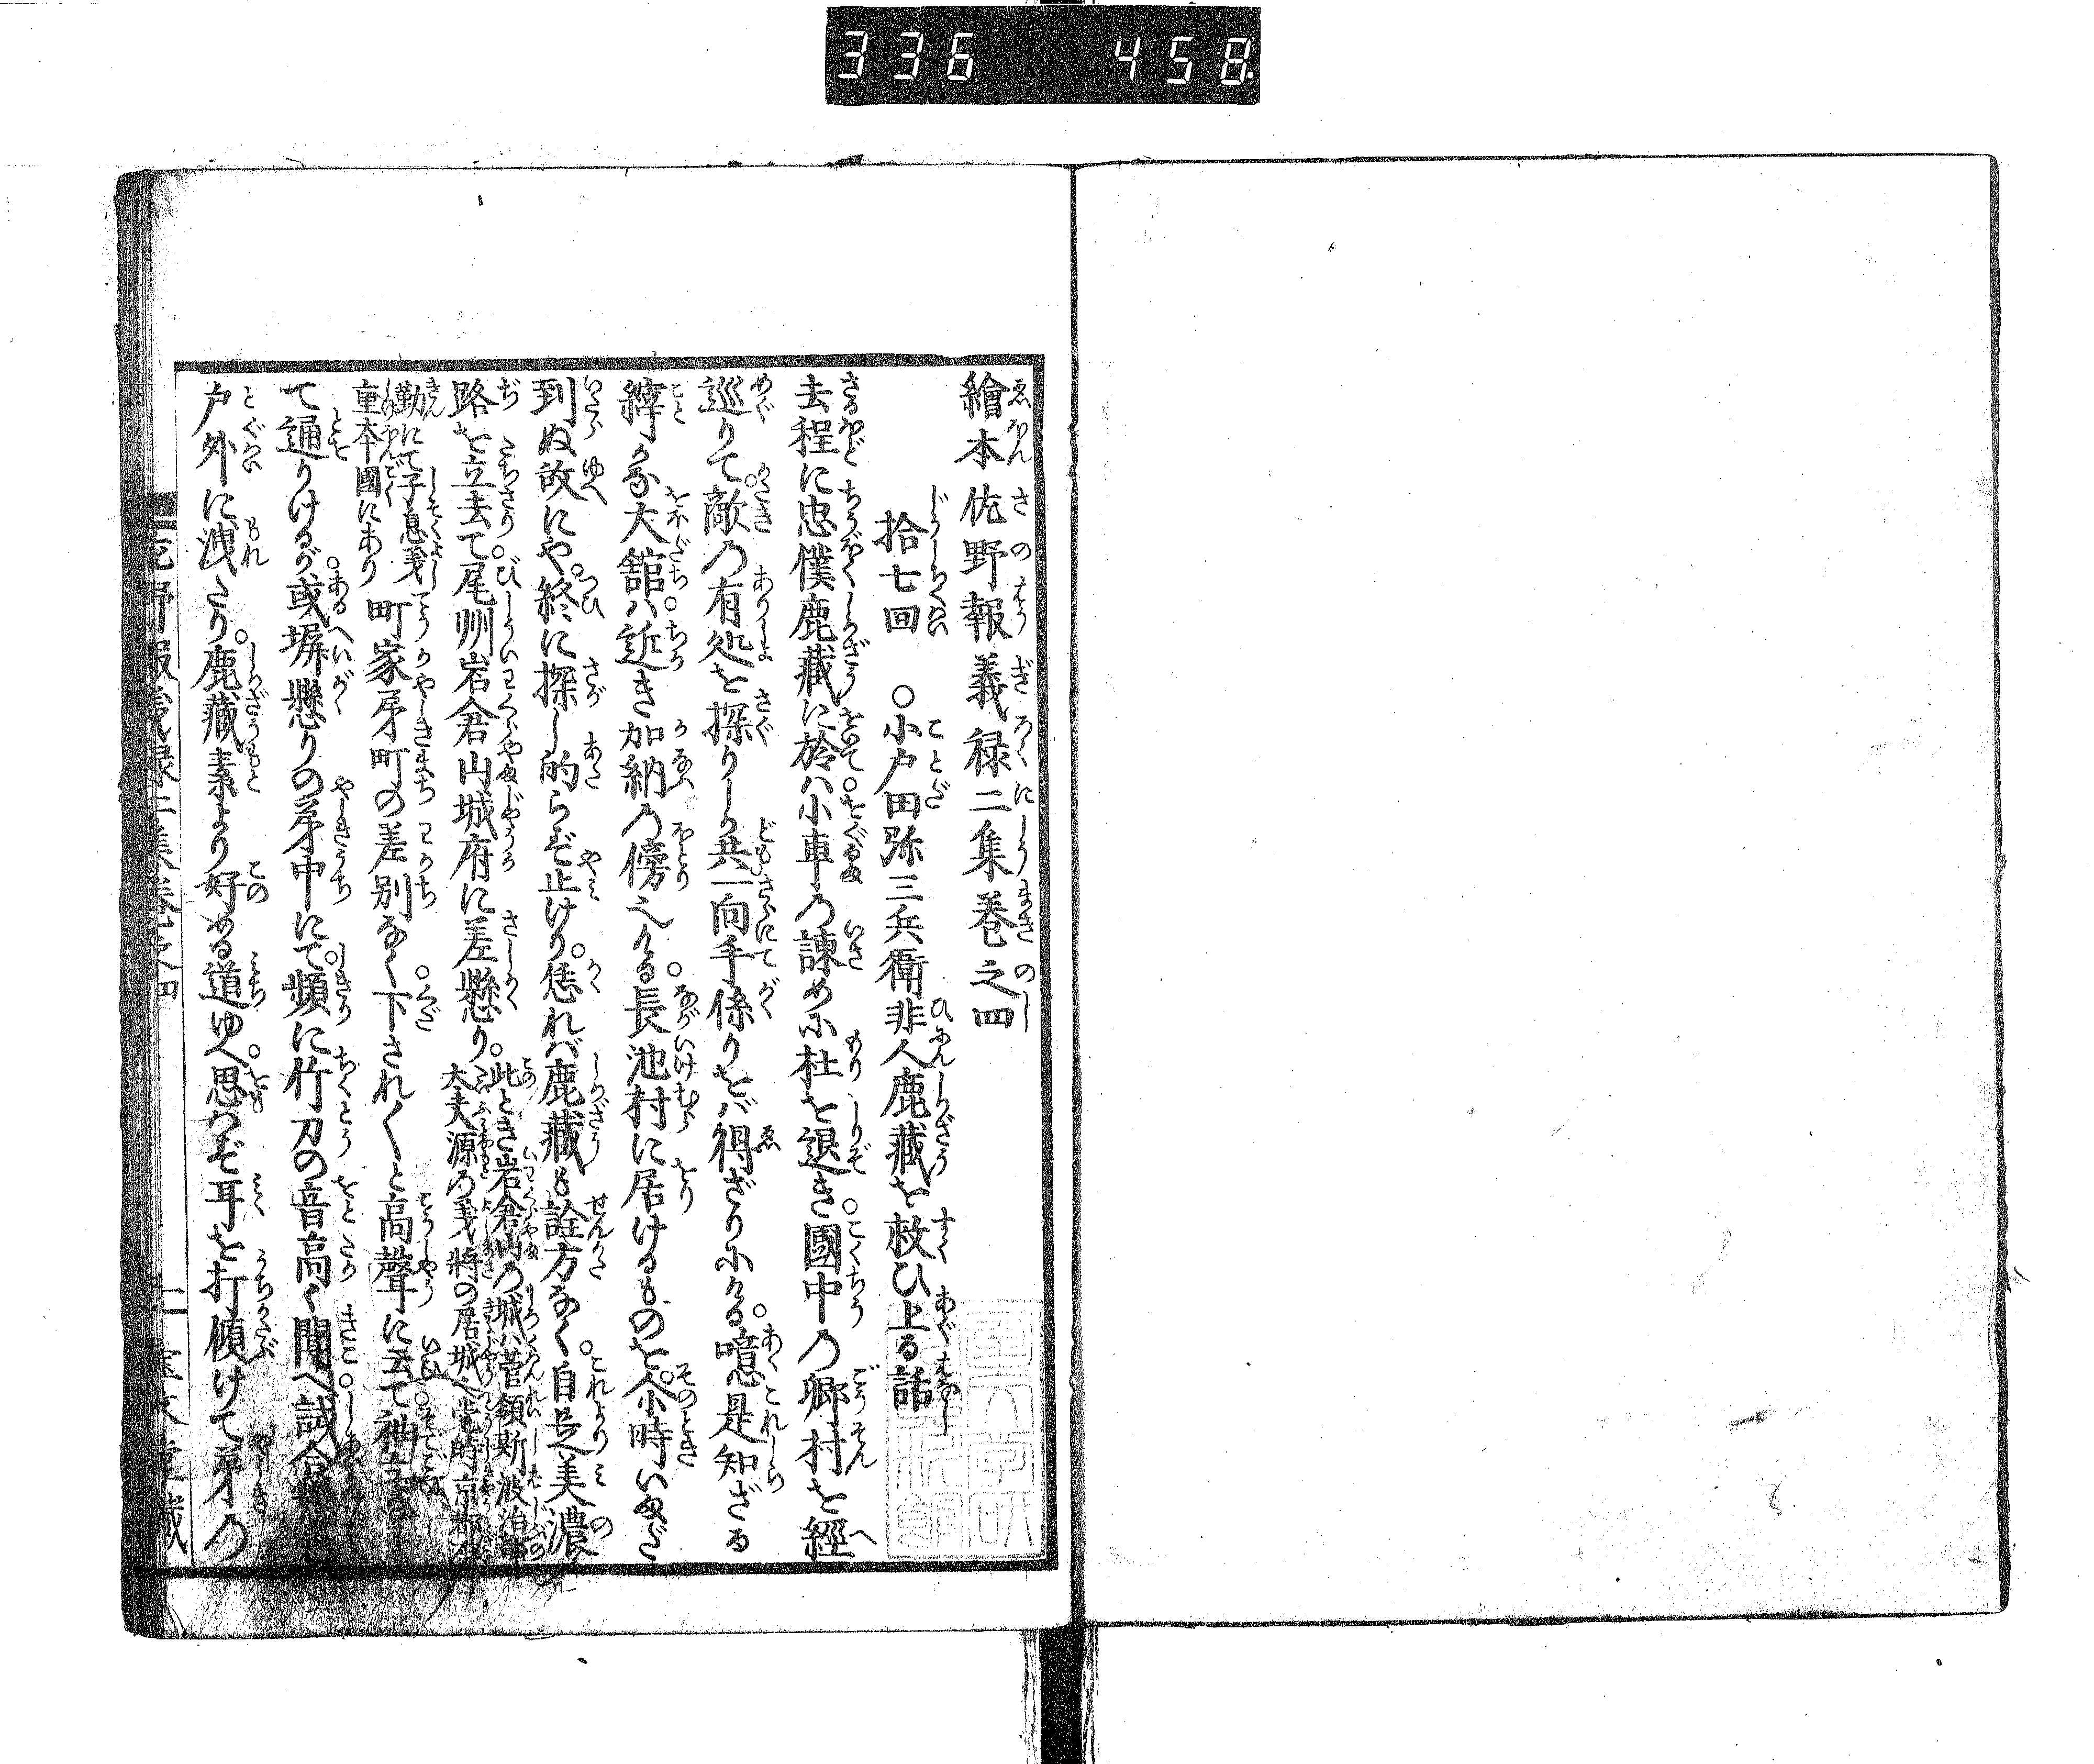 336 458
繪本佐野報義禄二集巻之四
拾七回 ○小戸田弥三兵衛非人鹿藏を救ひ上る話
去程に忠僕鹿藏に於ハ小車乃諫め小杜を退き國中乃郷村を經
巡りて敵乃有処を探りしか共一向手係りをバ得ざりける噫是知ざる
縡かな大舘ハ近き加納乃傍へなる長池村に居けるものを尒時いまだ
到ぬ故にや終に探し的らぞ止けり恁れバ鹿藏も詮方なく自是美濃
路を立去て尾州岩倉山城府に差懸り此とき岩倉山乃城ハ菅領斯波治部
大夫源乃義將の居城
勤にて子息義
重本國にあり町家㐧町の差別なく下されくと高聲に云て袖
て通りけるが或塀懸りの㐧中にて頻に竹刀の音高く聞へ試合
戸外に洩たり鹿藏素より好める道ゆへ思わぞ耳を打傾けて㐧乃
野報義録二集巻之四